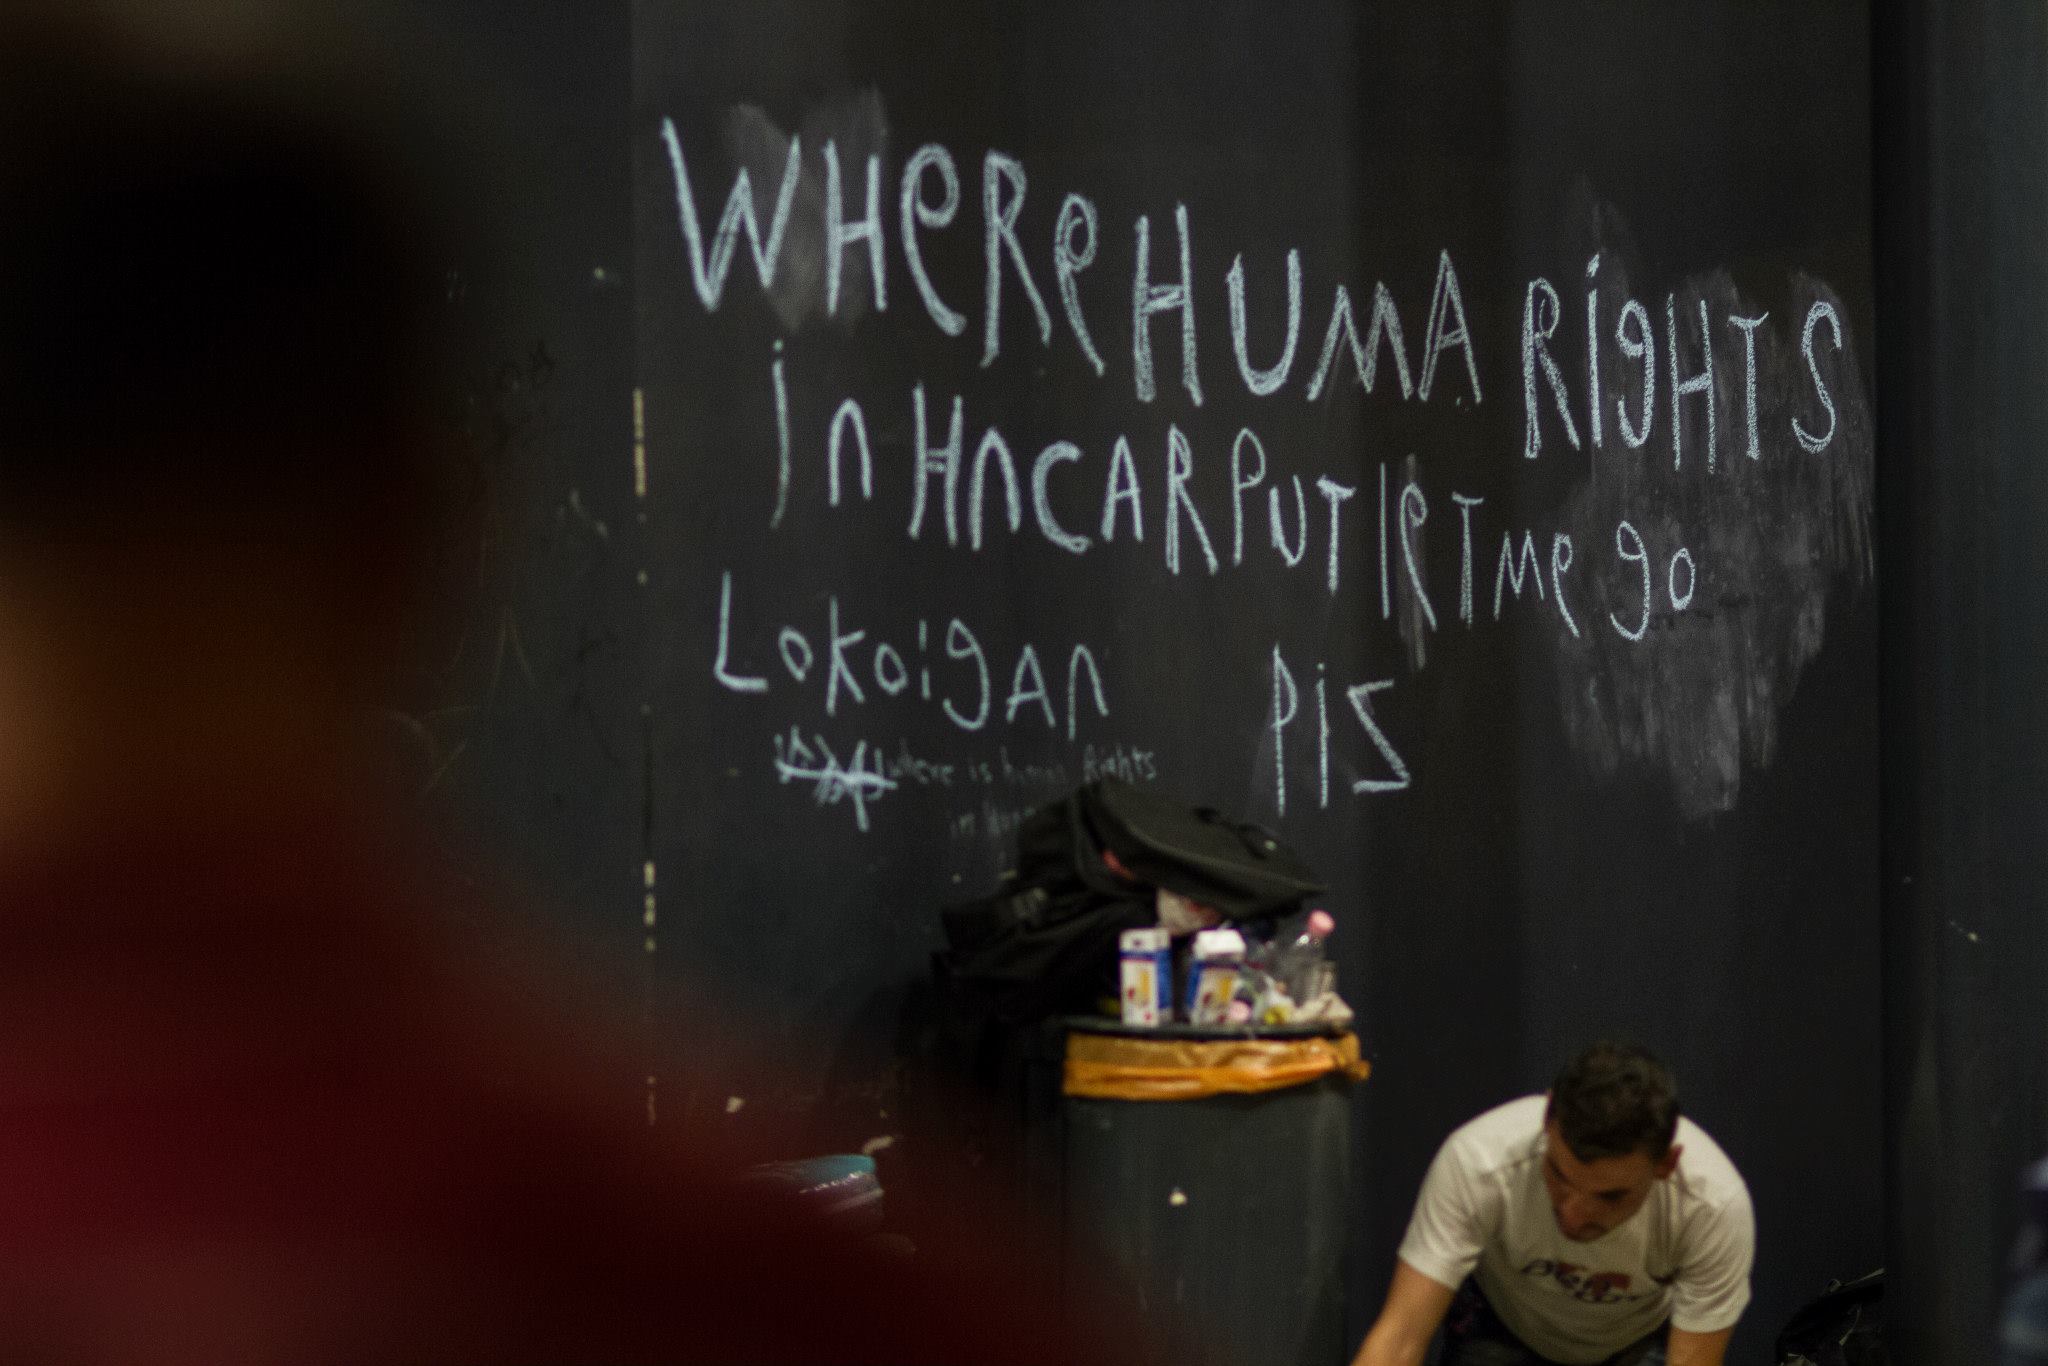 WHeRe HUMA RigHTS
in HnCARPUT leT me go
LokoigAn Piz
where is human Rights
in